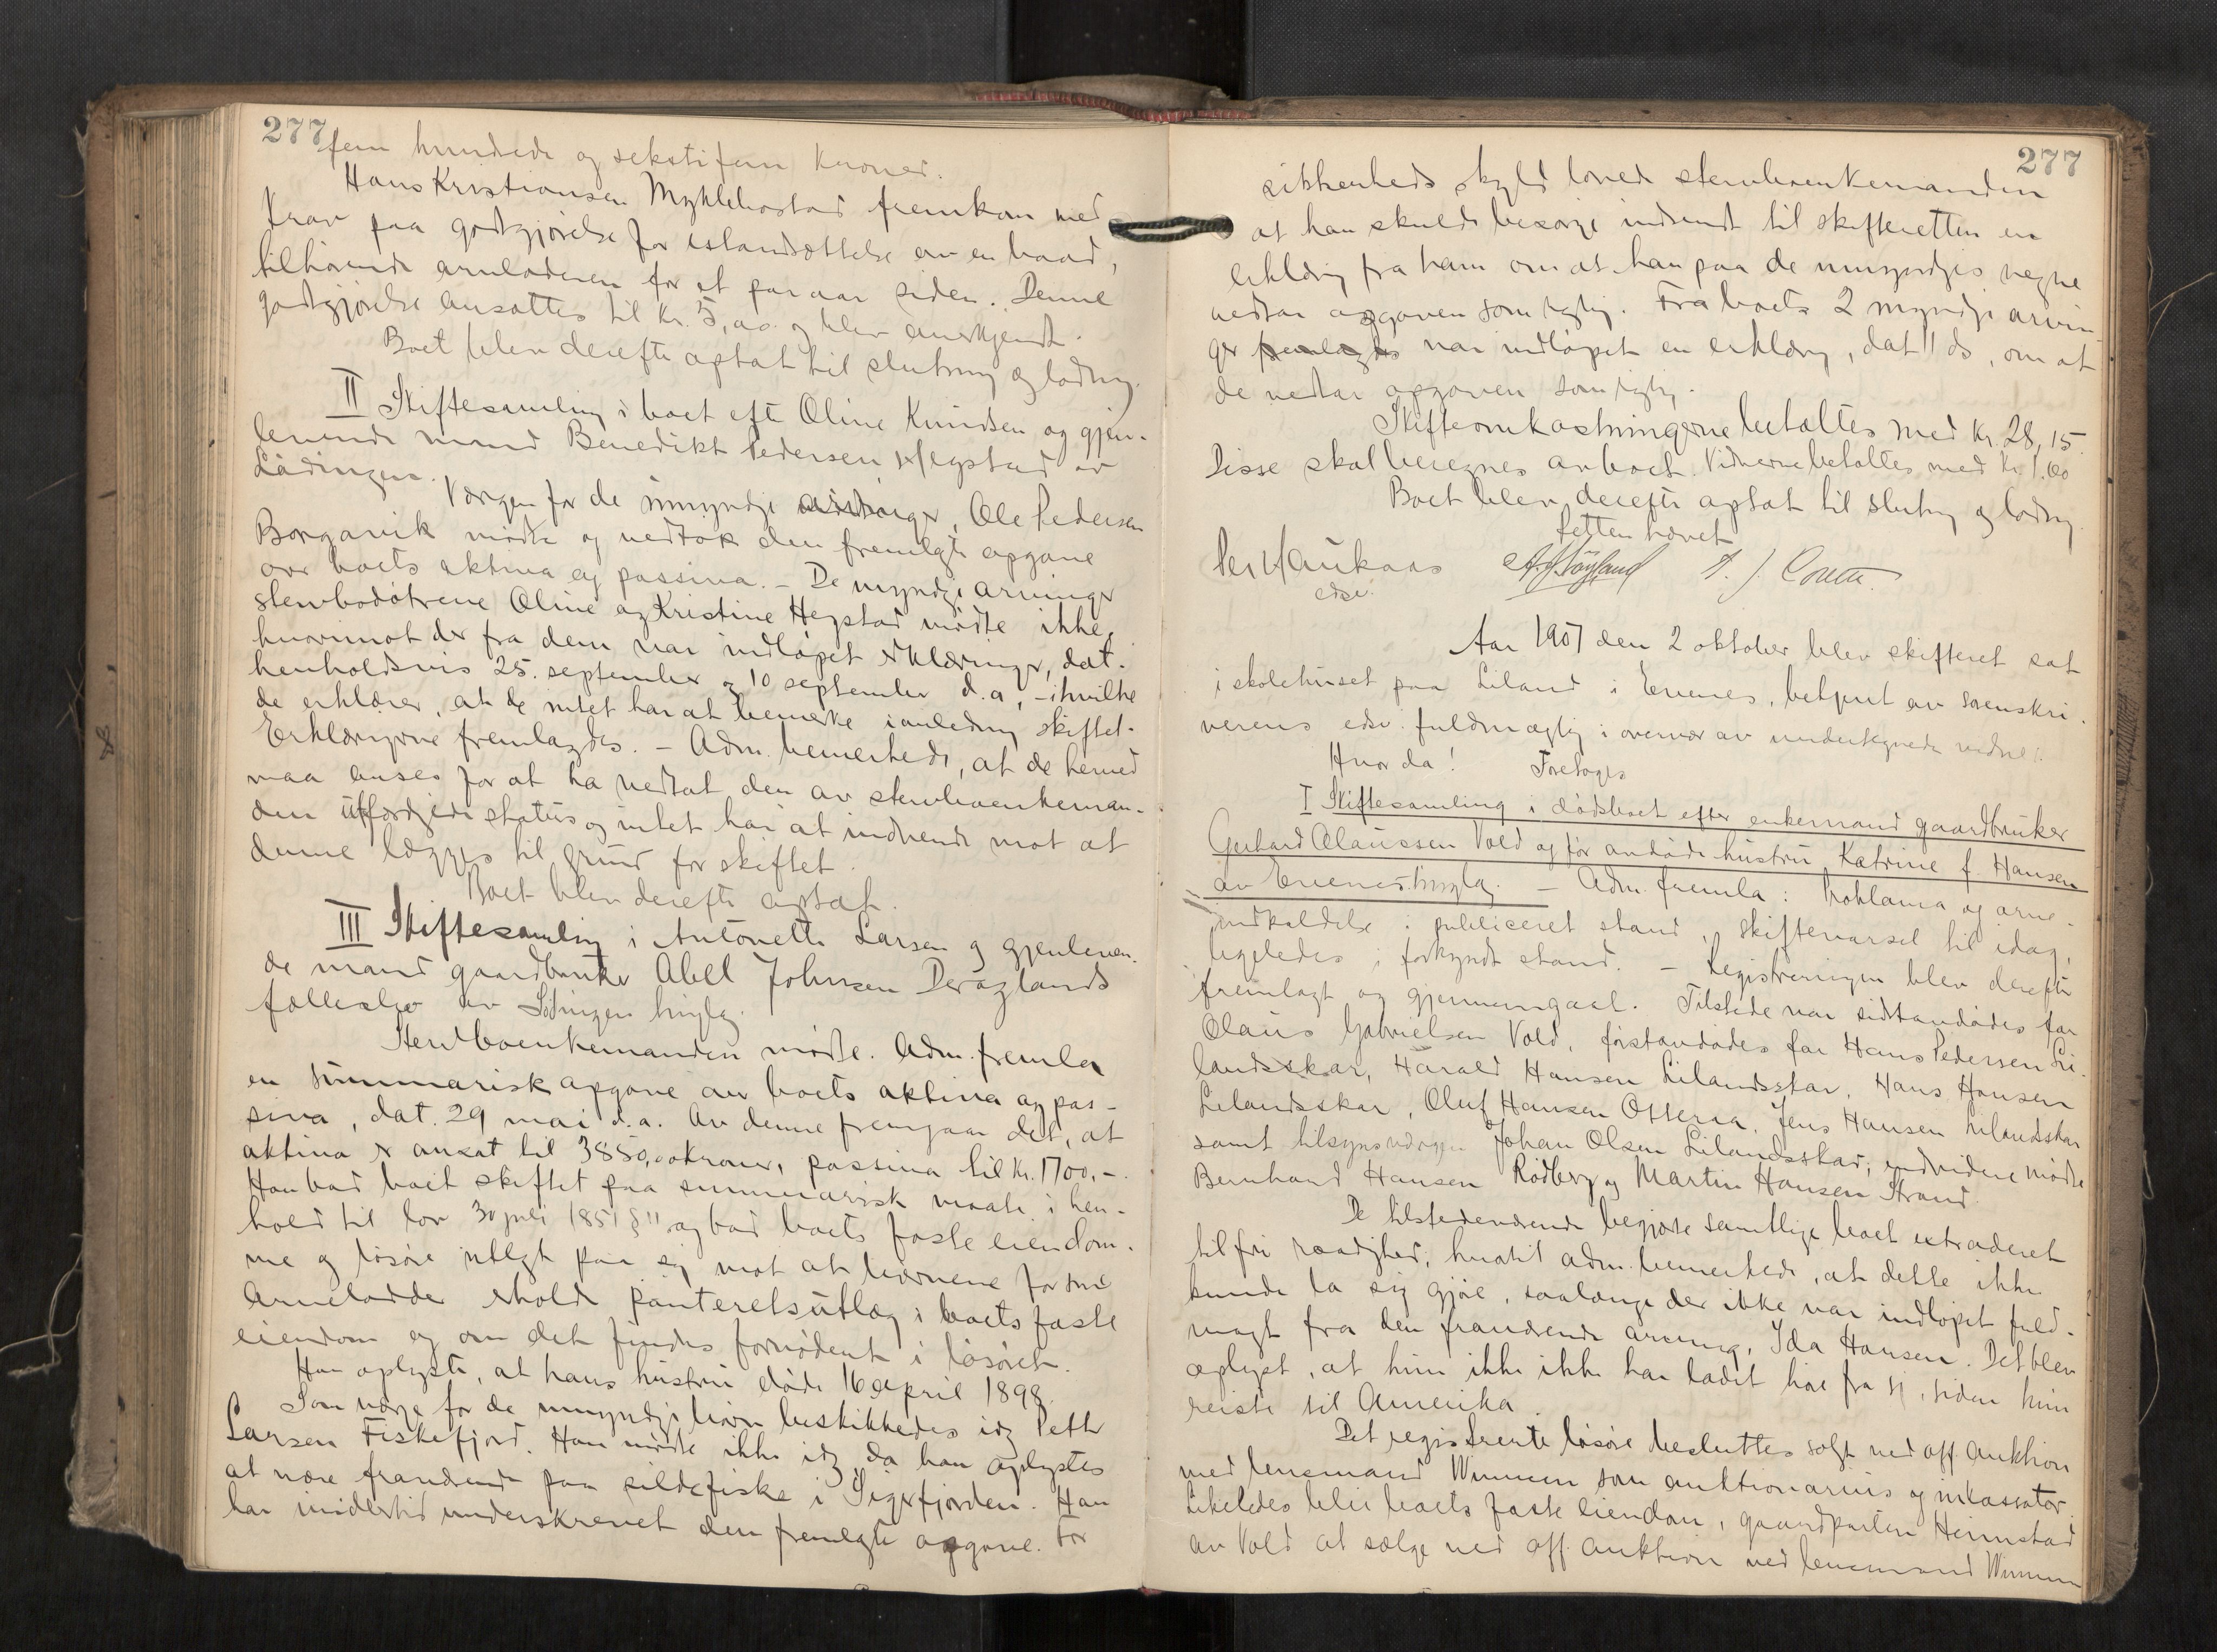 277
fem hundrede og sekstifem kroner.
Hans Kristiansen Myklebostad fremkom med
krav paa godtgjørelse for istandsættelse av en baad,
tilhørende arveladeren for et par aar siden. Denne
godtgjørelse ansattes til kr. 5,00 og blev anerkjendt.
Boet blev derefter optat til slutning og lodning.
II Skiftesamling i boet eft Oline Knudsen og gjen-
levende mand Benedikt Pedersen Hegstad av
Lødingen.
Værgen for de umyndige arvinger, Ole Pedersen
Borgarvik møtte og vedtok den fremlagte opgave
over boets aktiva og passiva. – De myndige arvinger
stervbodøtrene Oline og Kristine Hegstad mødte ikke,
hvorimot der fra dem var indløpet erklæringer, dat.
henholdsvis 25. september og 10 september d.a, – i hvilke
de erklærer, at de intet har at bemerke i anledning skiftet.
Erklæringerne fremlagdes. – Adm. bemerkede, at de hermed
maa anses for at ha vedtat den av stervboenkeman-
den utfærdigede status og intet har at indvende mot at
denne lægges til grund for skiftet.
Boet blev derefter optat.
III Skiftesamling i Antonette Larsen og gjenleven-
de mand gaardbruker Abel Johnsen Deraglands
fællesbo av Lødingen tinglag.
Stervboenkemanden mødte. Adm. fremla
en summarisk opgave av boets aktiva og pas-
siva, dat. 29 mai d.a. Av denne fremgaar det, at
aktiva er ansat til 3850,00 kroner, passiva til kr. 1700,–.
Han bad boet skiftet paa summarisk maate i hen-
hold til lov 30 juli 1851 § 11 og bad boets faste eiendom-
me og løsøre utlagt paa sig mot at børnene for sine
arvelodder erholdt panteretsutlæg i boets faste
eiendom og om det findes fornødent i løsøret.
Han oplyste, at hans hustru døde 16 april 1898.
Som værge for de umyndige børn beskikkedes idag Petter
Larsen Fiskefjord. Han mødte ikke idag, da han oplystes
at være fraværende paa sildefiske i Sigerfjorden. Han
har imidlertid underskrevet den fremlagte opgave. For
277
sikkerheds skyld lovede stervboenkemanden
at han skulde besørge indsendt til skifteretten en
erklæring fra ham om at han paa de umyndiges vegne
vedtar opgaven som rigtig. Fra boets 2 myndige arvin-
ger fremlagdes var indløpet en erklæring, dat 1 ds, om at
de vedtar opgaven som rigtig.
Skifteomkostningerne betaltes med kr. 28,15.
Disse skal beregnes av boet. Vidnerne betaltes med kr. 1.00
Boet blev derefter optat til slutning og lodning.
Retten hævet
Per Haukaas
edsv.
Aar 1907 den 2 oktober blev skifteret sat
i skolehuset paa Liland i Evenes, betjent av sorenskri-
verens edsv. fuldmægtig i overvær av undertegnede vidner.
Hvor da! Foretoges
I Skiftesamling i dødsboet efter enkemand gaardbruker
Gerhard Olaussen Vold og før avdøde hustru Katrine f. Hansen
av Evenes tinglag. – Adm. fremla: Proklama og arve-
indkaldelse i publiceret stand, skiftevarsel til idag,
ligeledes i forkyndt stand. – Registreringen blev derefter
fremlagt og gjennemgaat. Tilstede var sidstavdødes far
Olaus Gabrielsen Vold, førstavdødes far Hans Pedersen Li-
landsskar, Harald Hansen Lilandsskar, Hans Hansen
Lilandsskar, Oluf Hansen Osterra, Jens Hansen Lilandsskar
samt tilsynsværgen Johan Olsen Lilandsskar; endvidere mødte
Bernhard Hansen Rødberg og Martin Hansen Strand.
De tilstedeværende begjærte samtlige boet extraderet
til fri raadighed, hvortil adm. bemerkede, at dette ikke
kunde la sig gjøre, saalænge der ikke var indløpet fuld-
magt fra den fraværende arving, Ida Hansen. Det blev
oplyst, at hun ikke ikke har ladet høre fra sig, siden hun
reiste til Amerika.
Det registrerte løsøre besluttes solgt ved off. auktion
med lensmand Wimmen som auktionarius og inkassator.
Likeledes blir boets faste eiendom, gaardparten Heimstad
av Vold at sælge ved off. auktion ved lensmand Wimmen